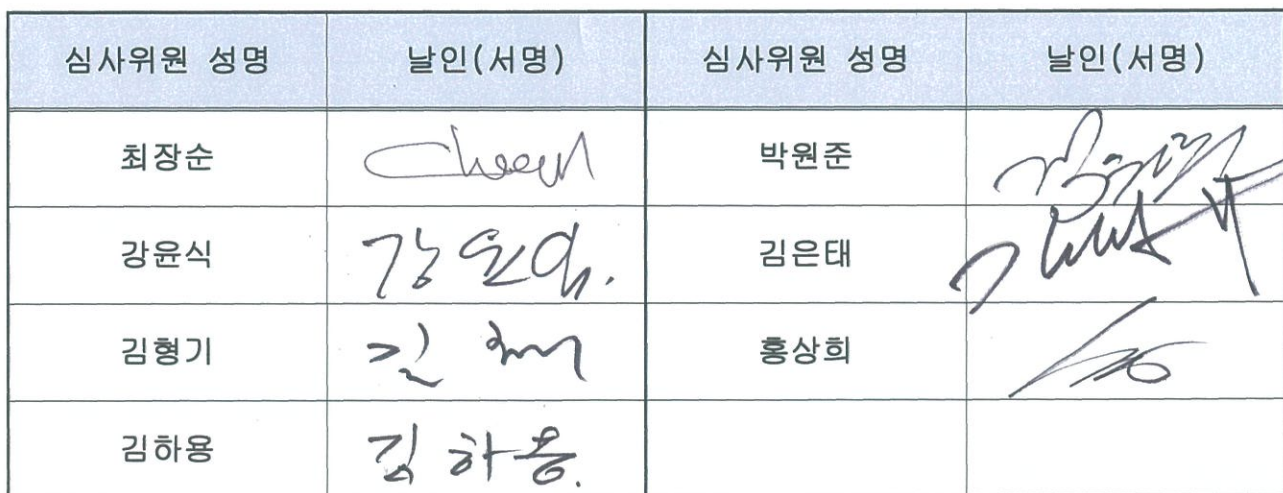 심사위원 성명 날인(서명) 심사위원 성명 날인(서명)
최장순 박원준
강윤식 강윤식. 김은태
김형기 홍상희
김하용 김하용.